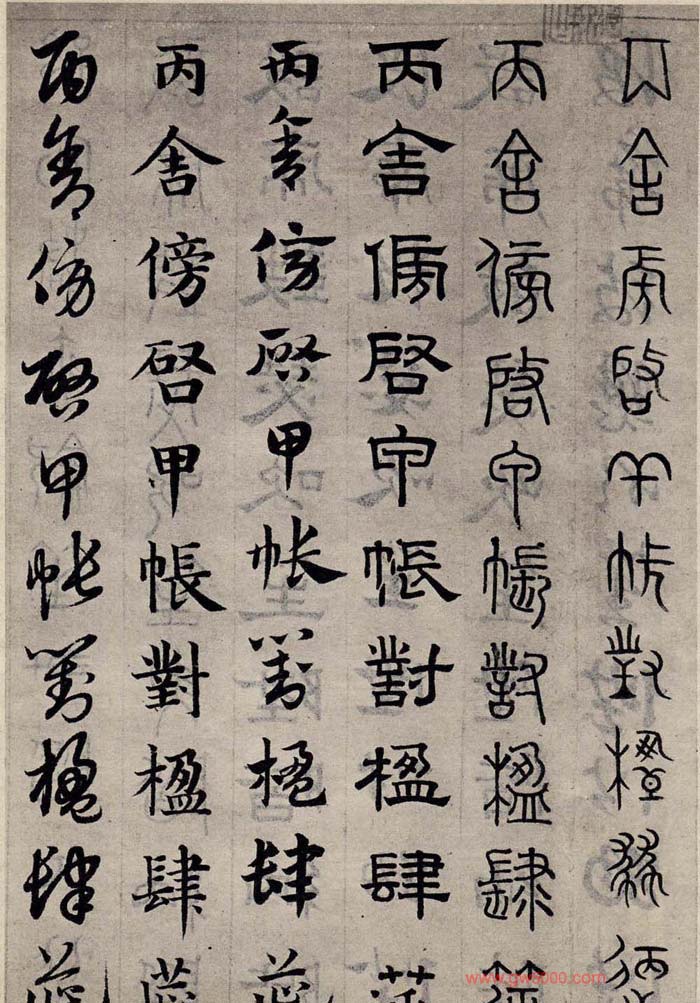 丙舍旁啓甲帳對楹肆
丙舍傍啓甲帳對楹肆
丙舍傍啓甲帳對楹肆
丙舍傍啓甲帳對楹肆
丙舍傍啓甲帳對楹肆
丙舍傍啓甲帳對楹肆
www.gw8000.com